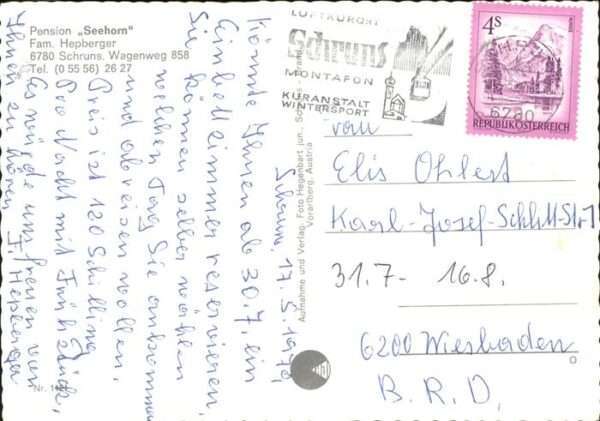 Pension „Seehorn"
Fam. Hepberger
6780 Schruns, Wagenweg 858
Tel. (0 55 56) 26 27
LUFTKURORT
Schruns
MONTAFON
KURANSTALT
WINTERSPORT
4S
REPUBLIK ÖSTERREICH
Schruns, 17. 5. 1978
Könnte Ihnen ab 30.7. ein
Einbettzimmer reservieren,
Sie können selber wählen
welchen Tag Sie ankommen
und abreisen wollen.
Preis ist 120 Schilling
Pro Nacht mit Frühstück,
Es würde uns freuen von
Ihnen zu hören F Hepberger
Nr.
Aufnahme und Verlag: Foto Hegenbart jun., Schruns
Vorarlberg, Austria
Frau
Elis Ohlest
Karl-Josef-Schlitt-Str. 1
31.7 - 16.8.
6200 Wiesbaden
B.R.D.